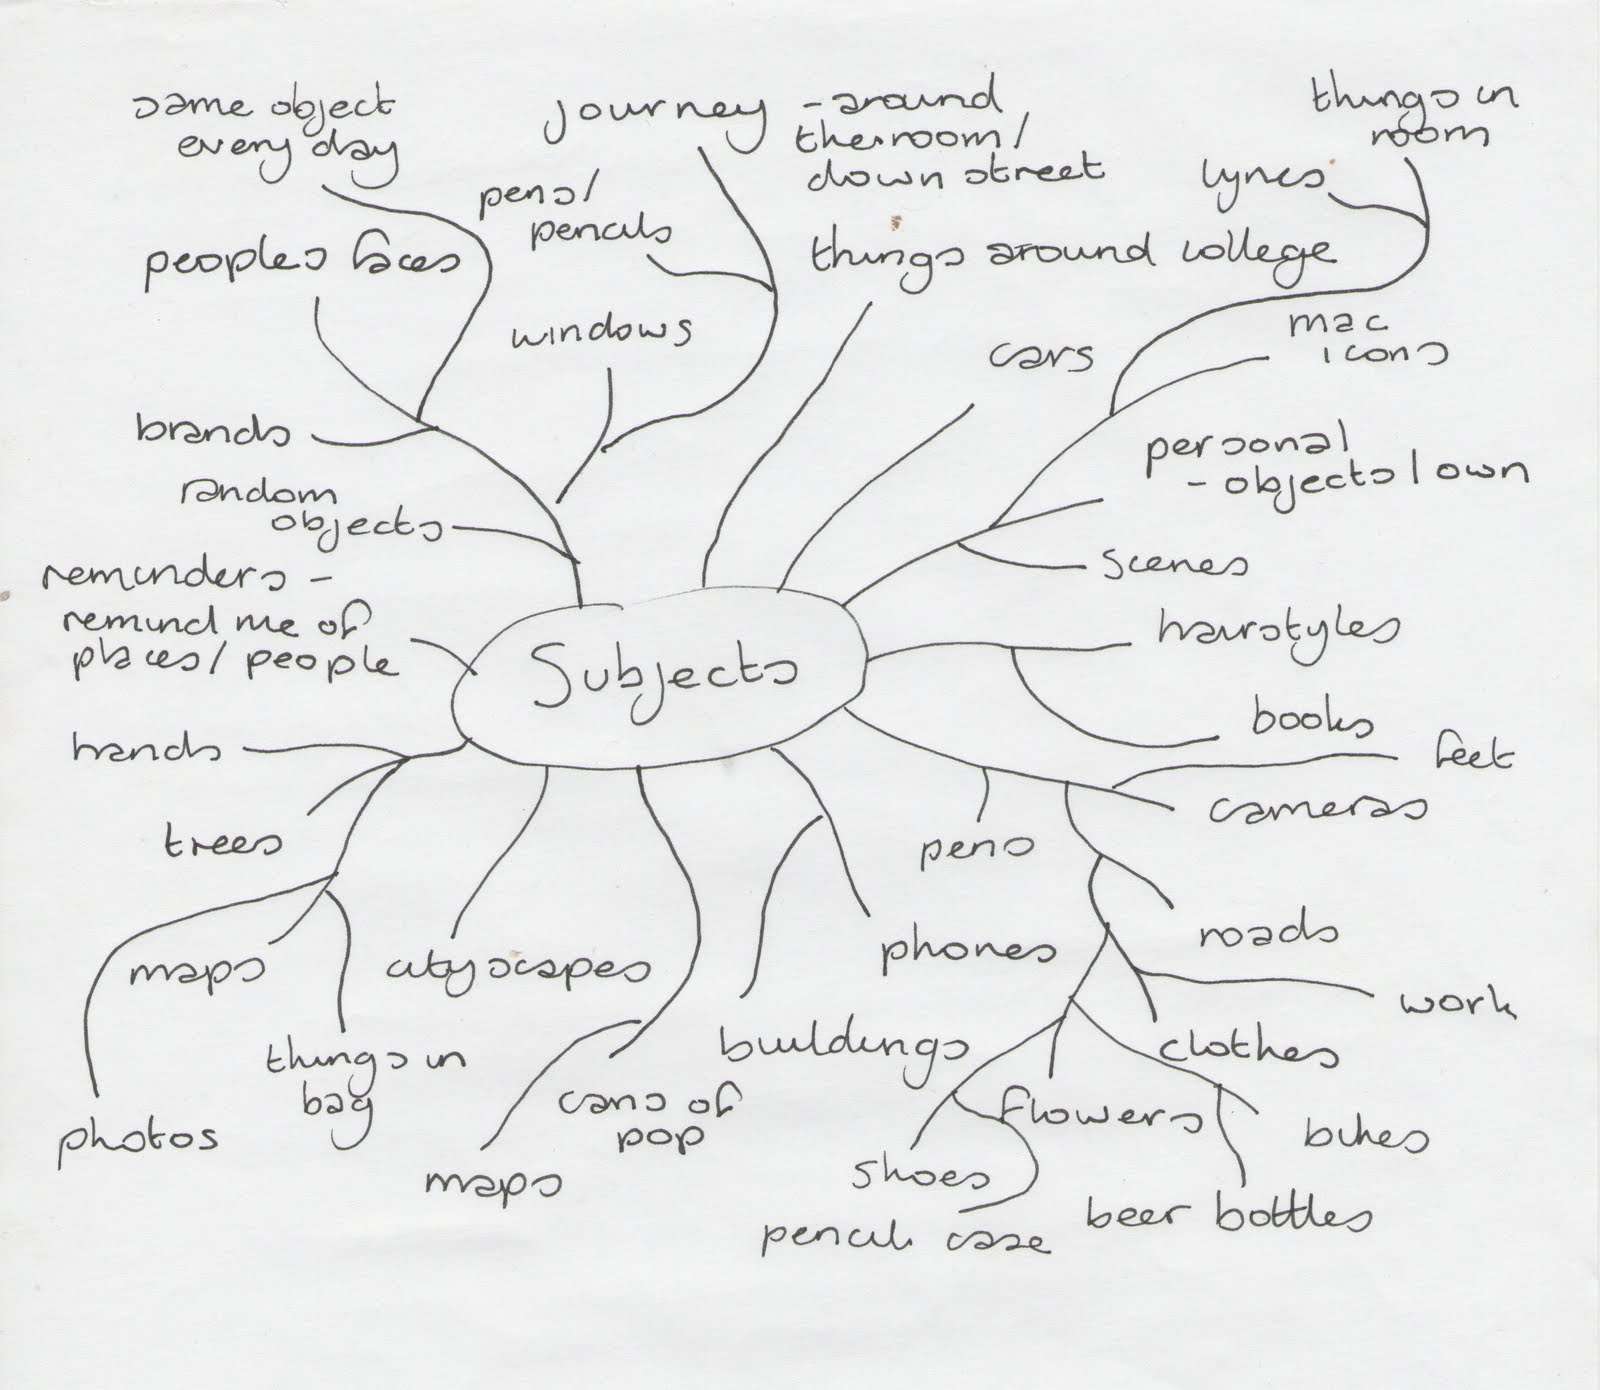 same object
every day
journey - around
the room /
down street
things in
room
lyncs
pens /
pencils
peoples faces
things around college
windows
cars
mac
icons
brands
personal
- objects I own
random
objects
scenes
reminders -
remind me of
places / people
hairstyles
Subjects
books
hands
feet
cameras
trees
pens
roads
maps
cityscapes
phones
work
things in
bag
buildings
clothes
photos
cans of
pop
flowers
bikes
maps
shoes
beer bottles
pencil case